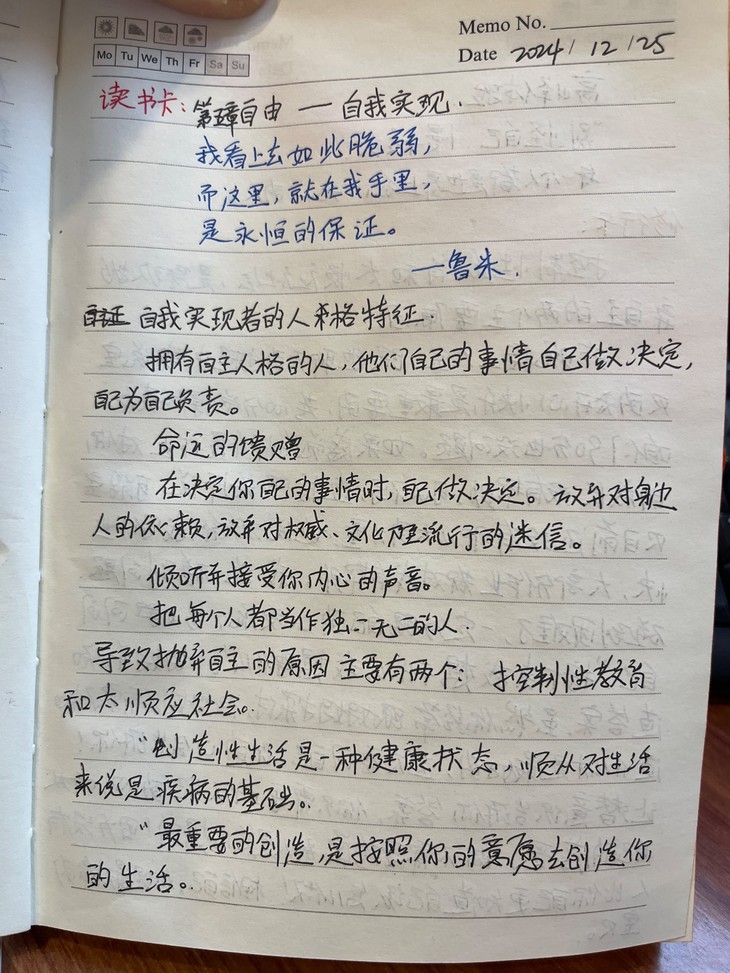 Memo No.
Mo Tu We Th Fr Sa Su
Date 2024/12/25
读书卡：第五章自由 — 自我实现.
我看上去如此脆弱，
而这里，就在我手里，
是永恒的保证。
—鲁朱.
自我实现者的人格特征.
拥有自主人格的人，他们自己的事情自己做决定，
自己为自己负责。
命运的馈赠
在决定你自己的事情时，自己做决定。放弃对身边
人的依赖，放弃对权威、文化乃至流行的迷信。
倾听并接受你内心的声音。
把每个人都当作独一无二的人.
导致抛弃自主的原因主要有两个：控制性教育
和太顺应社会。
“创造性生活是一种健康状态，顺从对生活
来说是疾病的基础。
“最重要的创造，是按照你的意愿去创造你
的生活。